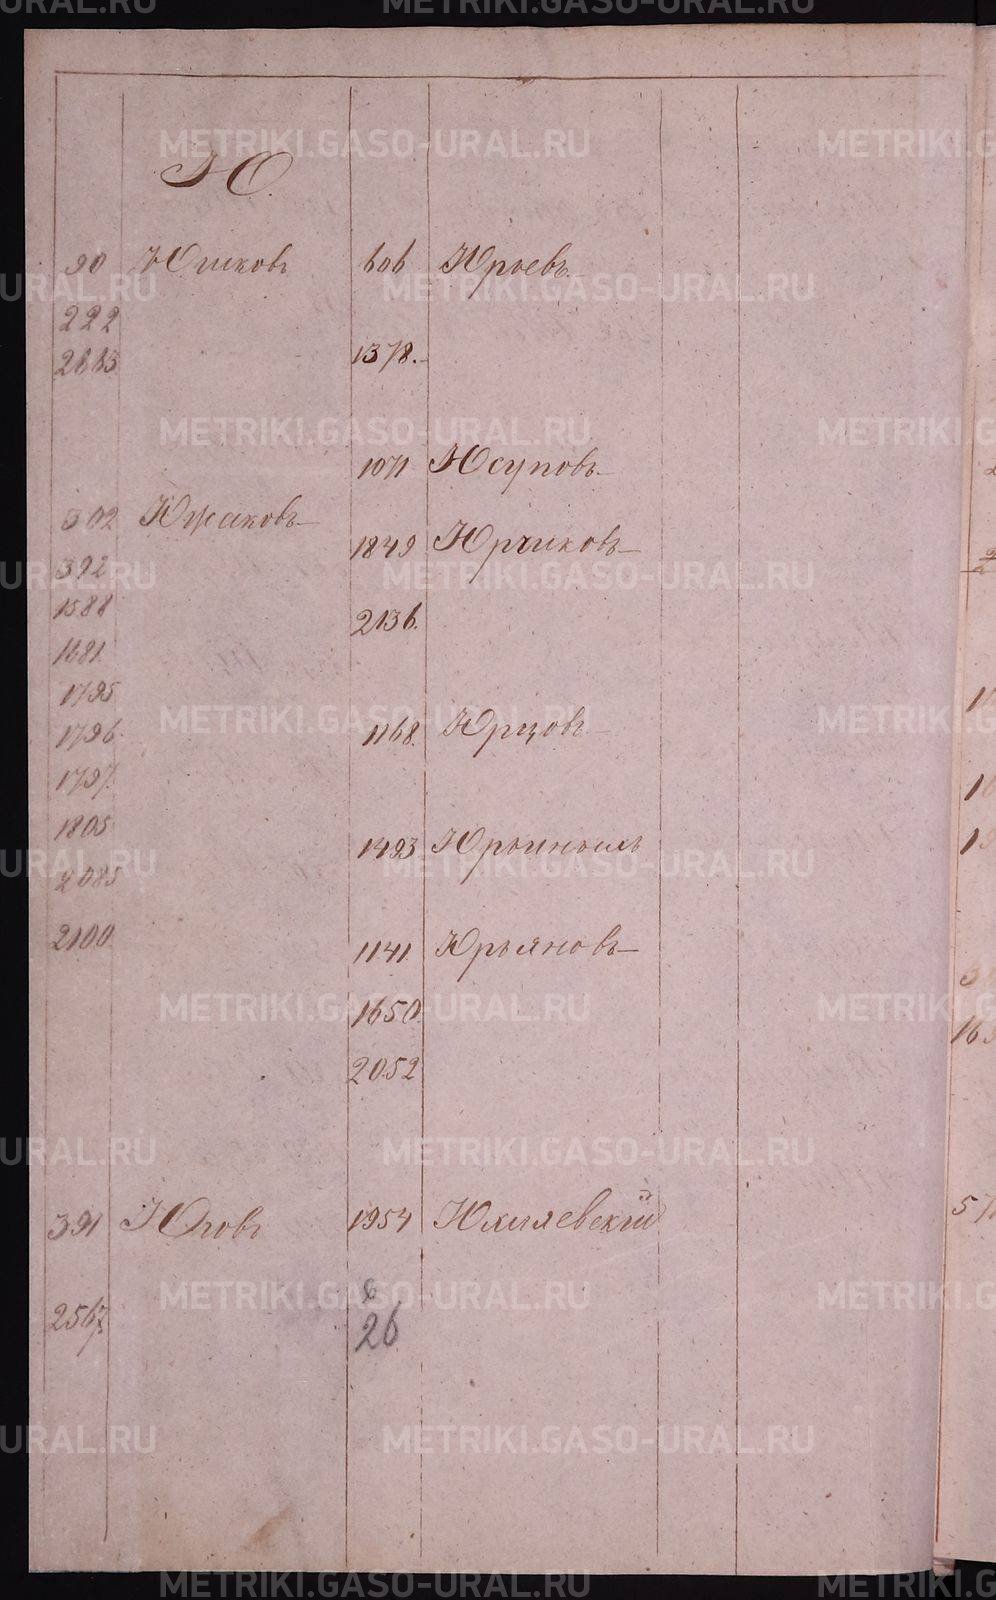 Ю.
90 Юшковъ
222
2663
302 Южаковъ
392
1588
1681.
1795
1796.
1797.
1805
2085
2100
391 Юговъ
2567
606 Юрьевъ
1378.
1071 Юсуповъ
1849 Юрчиковъ
2136.
1168. Юрцовъ
1493
1141. Юрьяновъ
1650.
2052
1954
26
METRIKI.GASO-URAL.RU